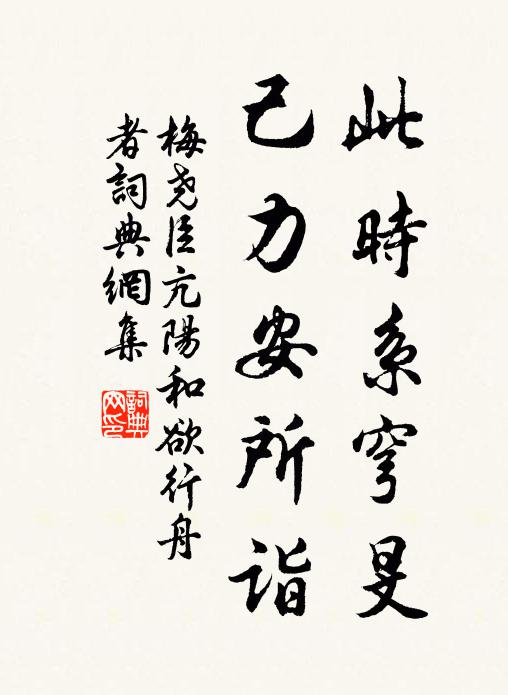 此時系穹旻
己力安所詣
梅堯臣亢陽和欲行舟
者詞典網集
詞典网印